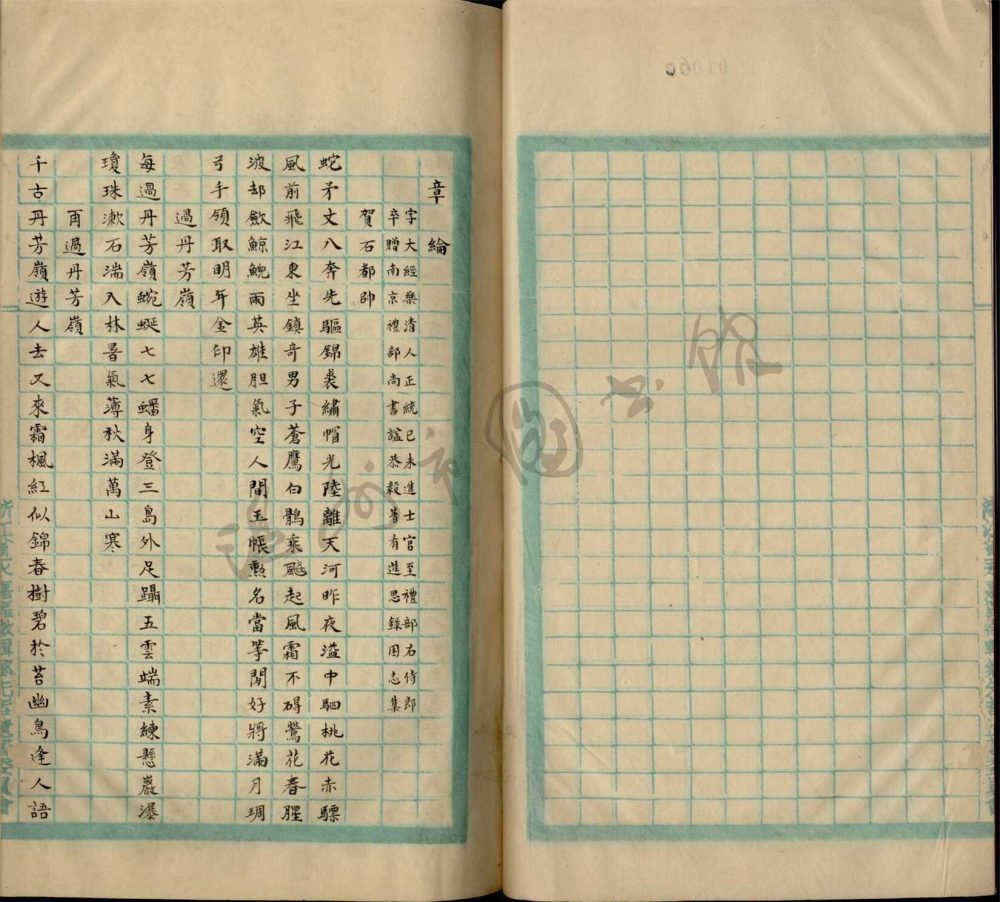 章綸
字大經樂清人正統己未進士官至禮部右侍郎
卒贈南京禮部尚書諡恭毅著有進思錄困志集
賀石都帥
蛇矛丈八奔先驅錦裘繡帽光陸離天河昨夜溢中駟桃花赤驃
風前飛江東坐鎮奇男子蒼鷹白鶻乘颷起風霜不碍鶯花春腥
波却歛鯨鯢雨英雄胆氣空人間玉帳勳名當等閒好將滿月琱
弓手領取明年金印還
過丹芳嶺
每過丹芳嶺蜿蜒七七蟠身登三島外足躡五雲端素練懸巖瀑
瓊珠漱石湍入林暑氣薄秋滿萬山寒
再過丹芳嶺
千古丹芳嶺遊人去又來霜楓紅似錦春樹碧於苔幽鳥逢人語
溫州市圖书館